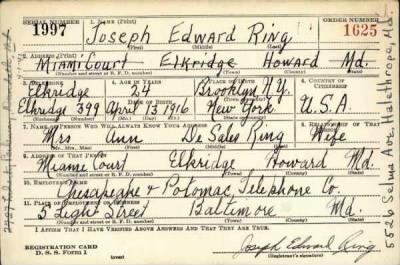 SERIAL NUMBER 1. NAME (Print) ORDER NUMBER
1997 Joseph Edward Ring 1625
(First) (Middle) (Last)
2. ADDRESS (Print)
Miami Court Elkridge Howard Md.
(Number and street or R. F. D. number) (Town) (County) (State)
3. TELEPHONE 4. AGE IN YEARS 5. PLACE OF BIRTH 6. COUNTRY OF CITIZENSHIP
Elkridge 24 Brooklyn N.Y.
DATE OF BIRTH
Elkridge 399 April 13 1916 New York U.S.A.
7. NAME OF PERSON WHO WILL ALWAYS KNOW YOUR ADDRESS
Mrs Ann De Sales Ring Wife
(Mr., Mrs., Miss) (First) (Middle) (Last)
8. ADDRESS OF THAT PERSON
Miami Court Elkridge Howard Md.
(Number and street or R. F. D. number) (Town) (County) (State)
10. EMPLOYER'S NAME
Chesapeake & Potomac Telephone Co.
11. PLACE OF EMPLOYMENT OR BUSINESS
5 Light Street Baltimore Md.
(Number and street or R. F. D. number) (Town) (County) (State)
I AFFIRM THAT I HAVE VERIFIED ABOVE ANSWERS AND THAT THEY ARE TRUE.
REGISTRATION CARD
D. S. S. Form 1
Joseph Edward Ring
(Registrant's signature)
5526 Selma Ave. Halethrope, Md.